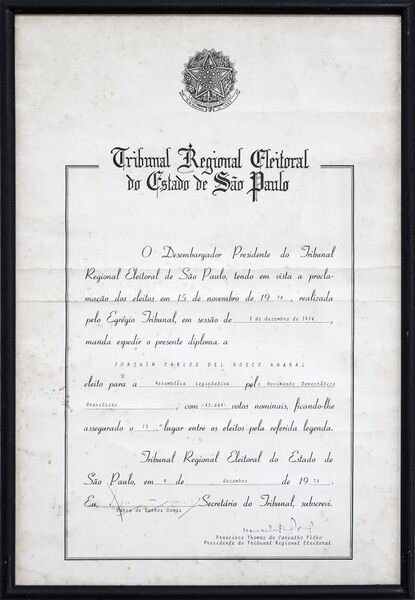 Tribunal Regional Eleitoral
do Estado de São Paulo
O Desembargador Presidente do Tribunal
Regional Eleitoral de São Paulo, tendo em vista a procla-
mação dos eleitos em 15 de novembro de 1974, realizada
pelo Egrégio Tribunal, em sessão de 3 de dezembro de 1974,
manda expedir o presente diploma a
JOAQUIM CARLOS DEL BOSCO AMARAL
eleito para a Assembléia Legislativa pelo Movimento Democrático
Brasileiro, com -47.689- votos nominais, ficando-lhe
assegurado o 19.º lugar entre os eleitos pela referida legenda.
Tribunal Regional Eleitoral do Estado de
São Paulo, em de dezembro de 1974.
Eu, Secretário do Tribunal, subscrevi.
de Barros Gomes
Francisco Thomaz de Carvalho Filho
Presidente do Tribunal Regional Eleitoral